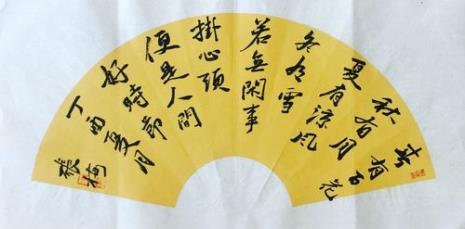 春有百花
秋有月
夏有涼風
冬有雪
若無閑事
掛心頭
便是人間
好時節
丁酉夏月
張